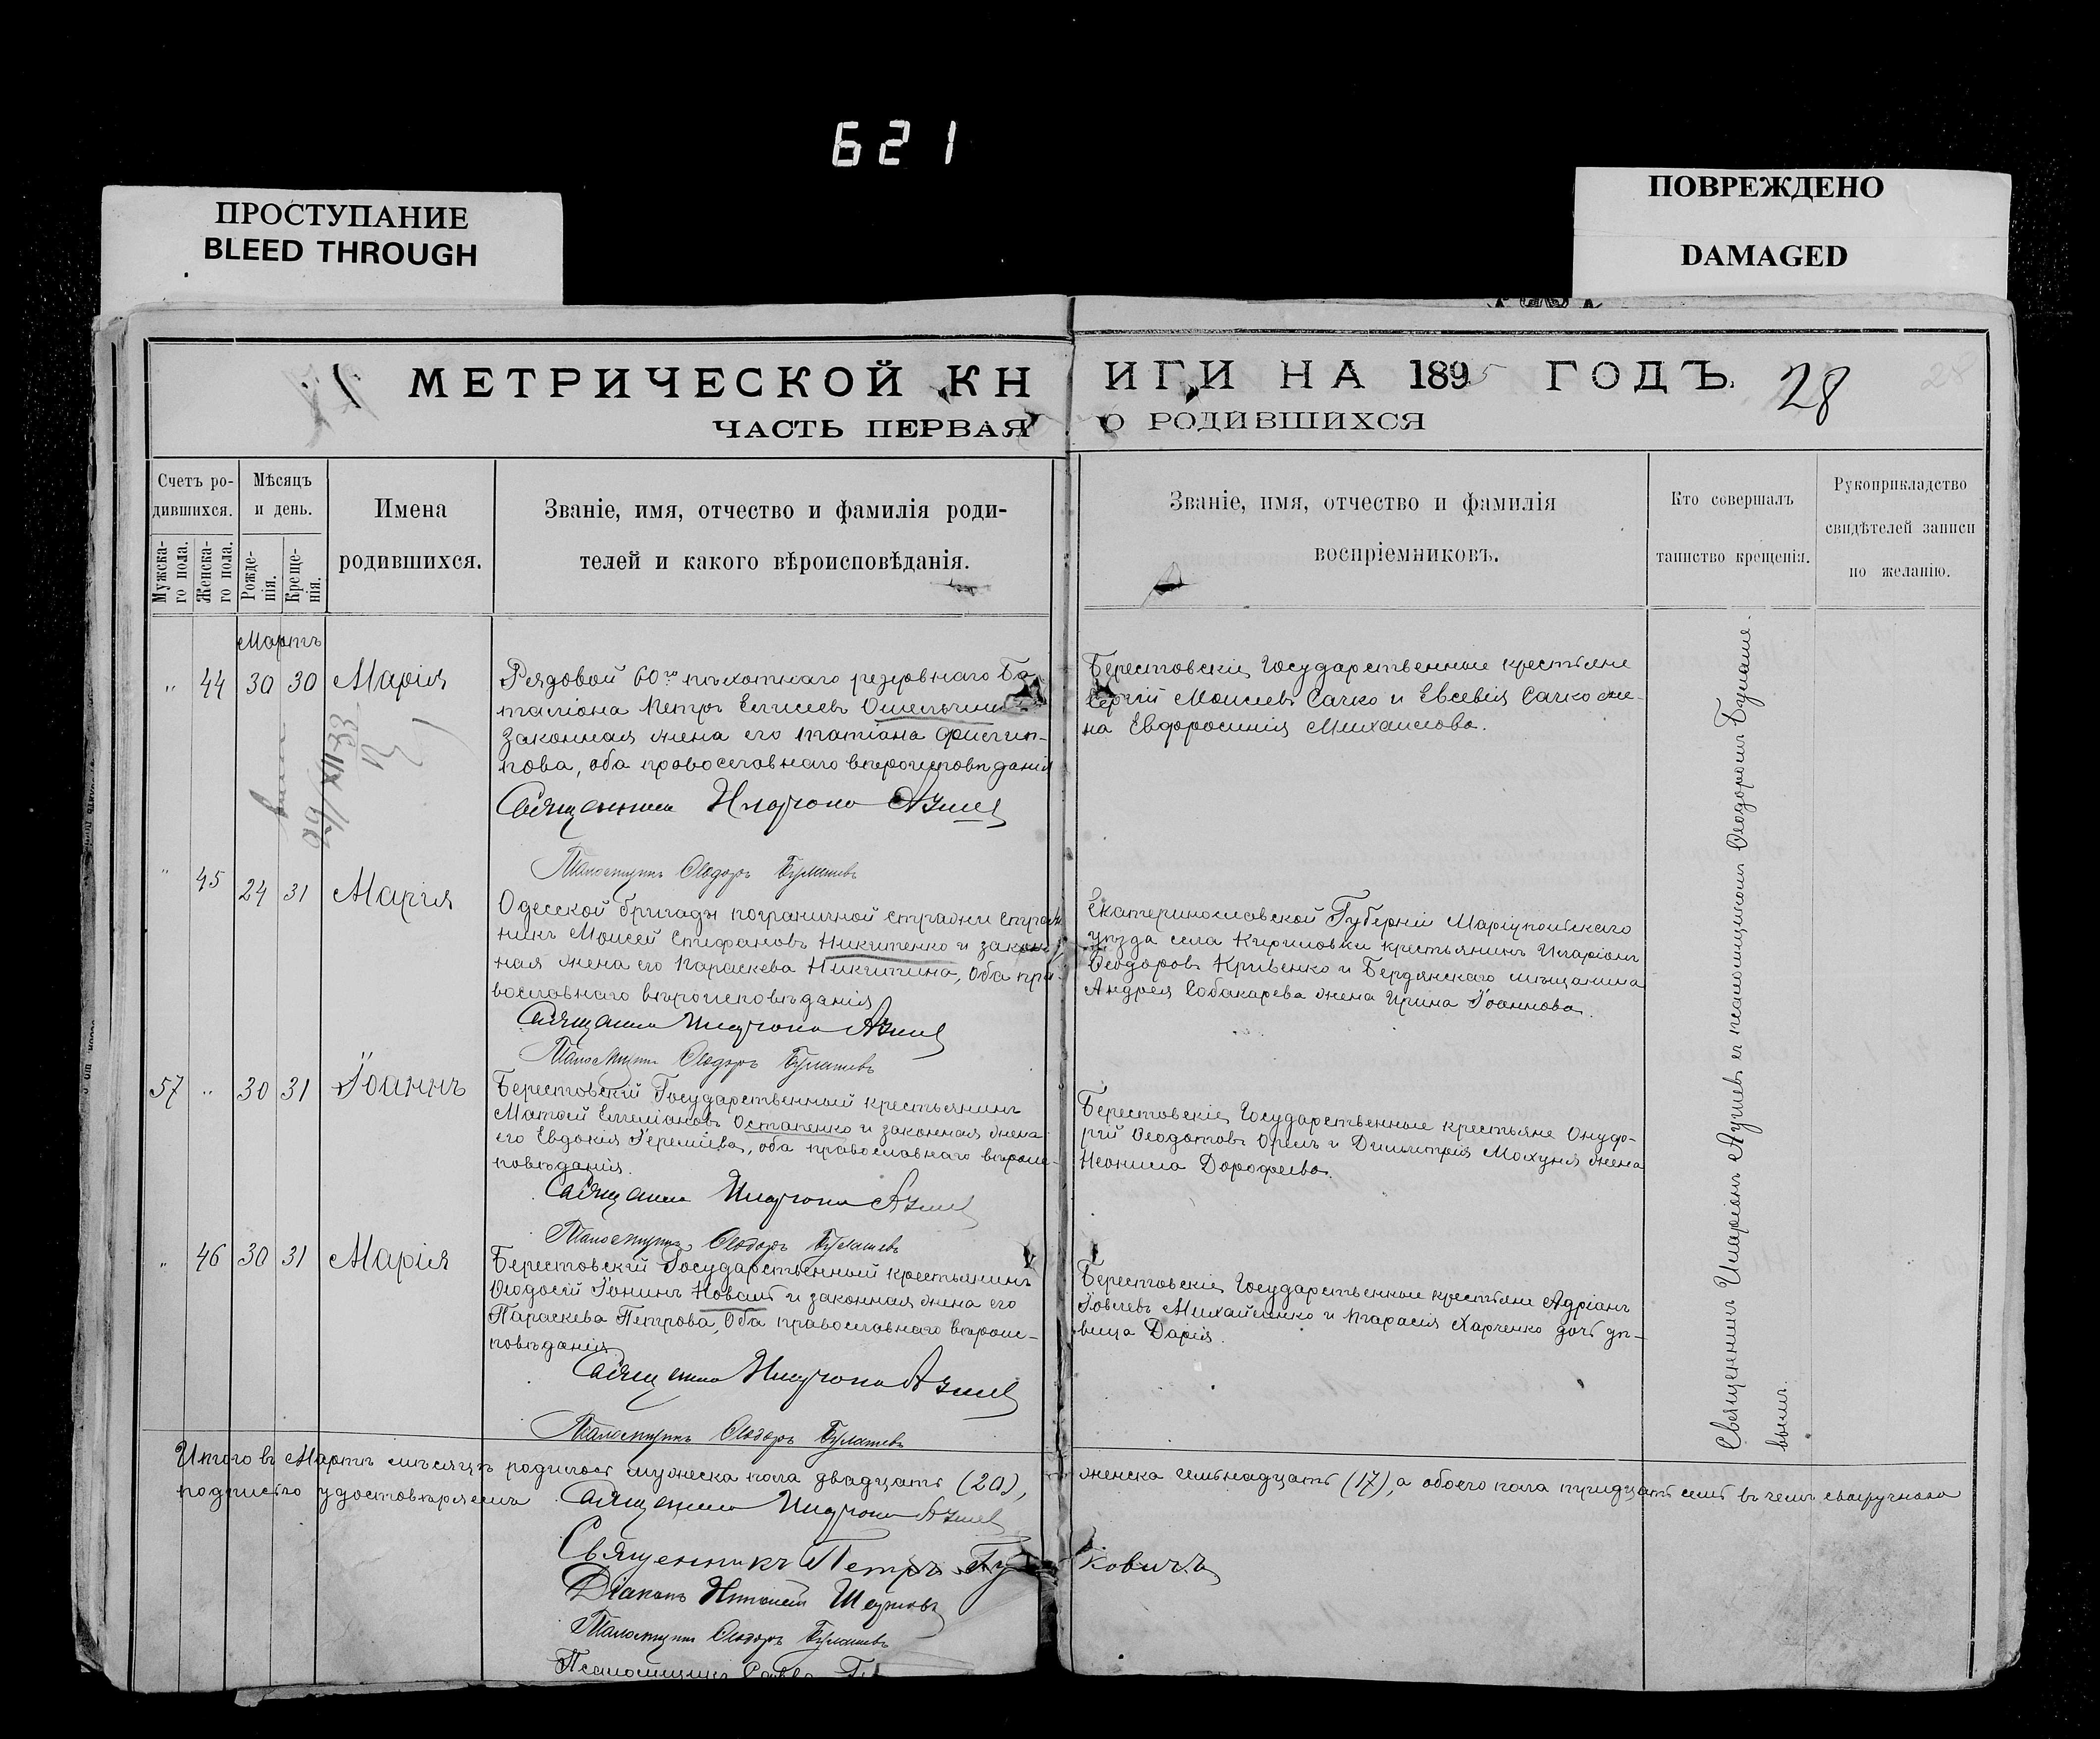 621
ПРОСТУПАНИЕ
BLEED THROUGH
ПОВРЕЖДЕНО
DAMAGED
МЕТРИЧЕСКОЙ КНИГИ НА 1895 ГОДЪ. 28
ЧАСТЬ ПЕРВАЯ О РОДИВШИХСЯ
Счетъ ро-
дившихся.
Мужска-
го пола.
Женска-
го пола.
Мѣсяцъ
и день.
Рожде-
нія.
Креще-
нія.
Имена
родившихся.
Званіе, имя, отчество и фамилія роди-
телей и какого вѣроисповѣданія.
Званіе, имя, отчество и фамилія
воспріемниковъ.
Кто совершалъ
таинство крещенія.
Рукоприкладство
свидѣтелей записи
по желанію.
Мартъ
" 44 30 30 Марія
Рядовой 60го пѣхотнаго резервнаго Ба
таліона Петръ Елисеевъ
законная жена его Татіана Филип-
пова, оба православнаго вѣроисповѣданія
Священникъ Иларіонъ
Псаломщикъ Ѳеодоръ Булашевъ
Берестовскіе Государственные крестьяне
Сергій Моисеевъ Сачко и Евсевія Сачко же-
на Евфросинія Михаилова.
" 45 24 31 Марія
Одесской бригады пограничной стражи страж
никъ Моисей Стефановъ Никитенко и закон
ная жена его Параскева Никитина, оба пра
вославнаго вѣроисповѣданія
Священникъ Иларіонъ
Псаломщикъ Ѳеодоръ Булашевъ
Екатеринославской Губерніи Маріупольскаго
уѣзда села Кириловки крестьянинъ Иларіонъ
Ѳеодоровъ Кривенко и Бердянскаго мѣщанина
Андрея Собакарева жена Ирина Іоаннова.
57 " 30 31 Іоаннъ
Берестовскій Государственный крестьянинъ
Матѳей Емеліановъ Остапенко и законная жена
его Евдокія Іереміева, оба православнаго вѣроис-
повѣданія.
Священникъ Иларіонъ
Псаломщикъ Ѳеодоръ Булашевъ
Берестовскіе Государственные крестьяне Онуф-
рій Ѳеодотовъ Орелъ и Димитрія Мохуня жена
Неонила Дорофеева.
" 46 30 31 Марія
Берестовскій Государственный крестьянинъ
Ѳеодосій Іонинъ Коваль и законная жена его
Параскева Петрова, оба православнаго вѣроис-
повѣданія.
Священникъ Иларіонъ
Псаломщикъ Ѳеодоръ Булашевъ
Берестовскіе Государственные крестьяне Адріанъ
Іовлевъ Михайленко и Тарасія Харченко дочь дѣ-
вица Дарія.
Священникъ Иларіонъ съ псаломщикомъ Ѳеодоромъ Булаше-
вымъ.
Итого въ Мартѣ мѣсяцѣ родилось мужеска пола двадцать (20), женска семнадцать (17), а обоего пола тридцать семь въ чемъ своеручною
подписью удостовѣряемъ Священникъ Иларіонъ
Священникъ Петръ
Діаконъ
Псаломщикъ Ѳеодоръ Булашевъ
Псаломщикъ